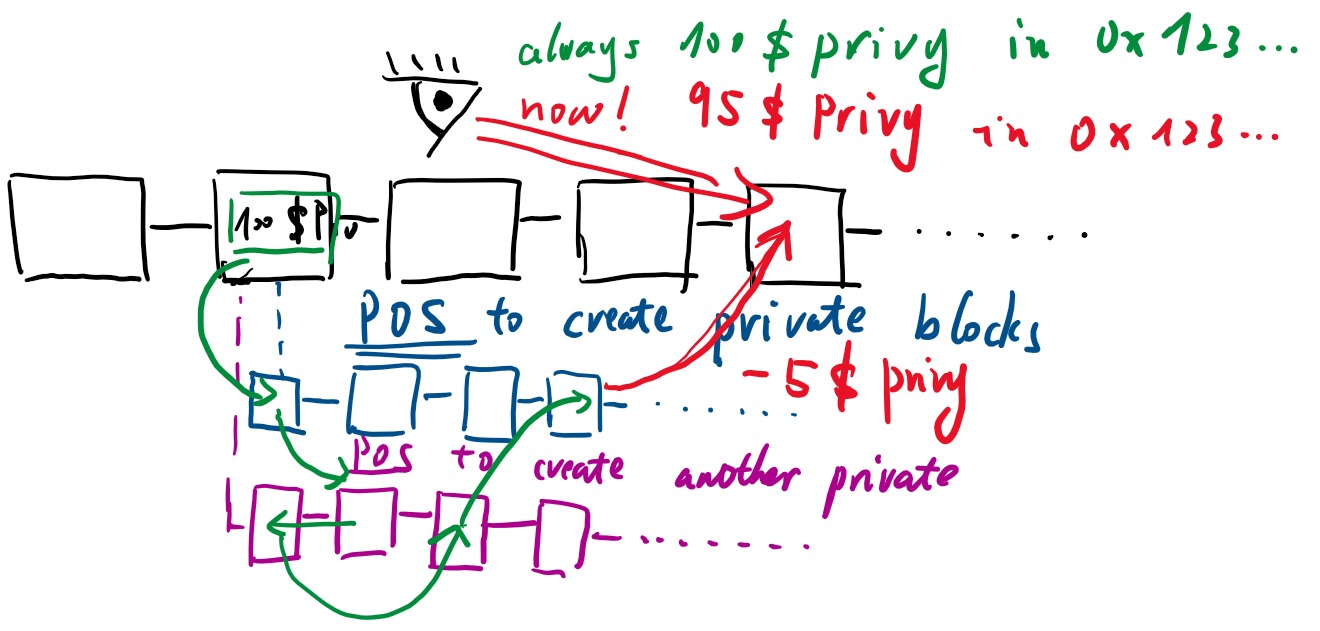 always 100 $ privy in 0x123...
now! 95 $ Privy in 0x123...
100 $ Priv
POS to create private blocks
- 5 $ privy
POS to create another private